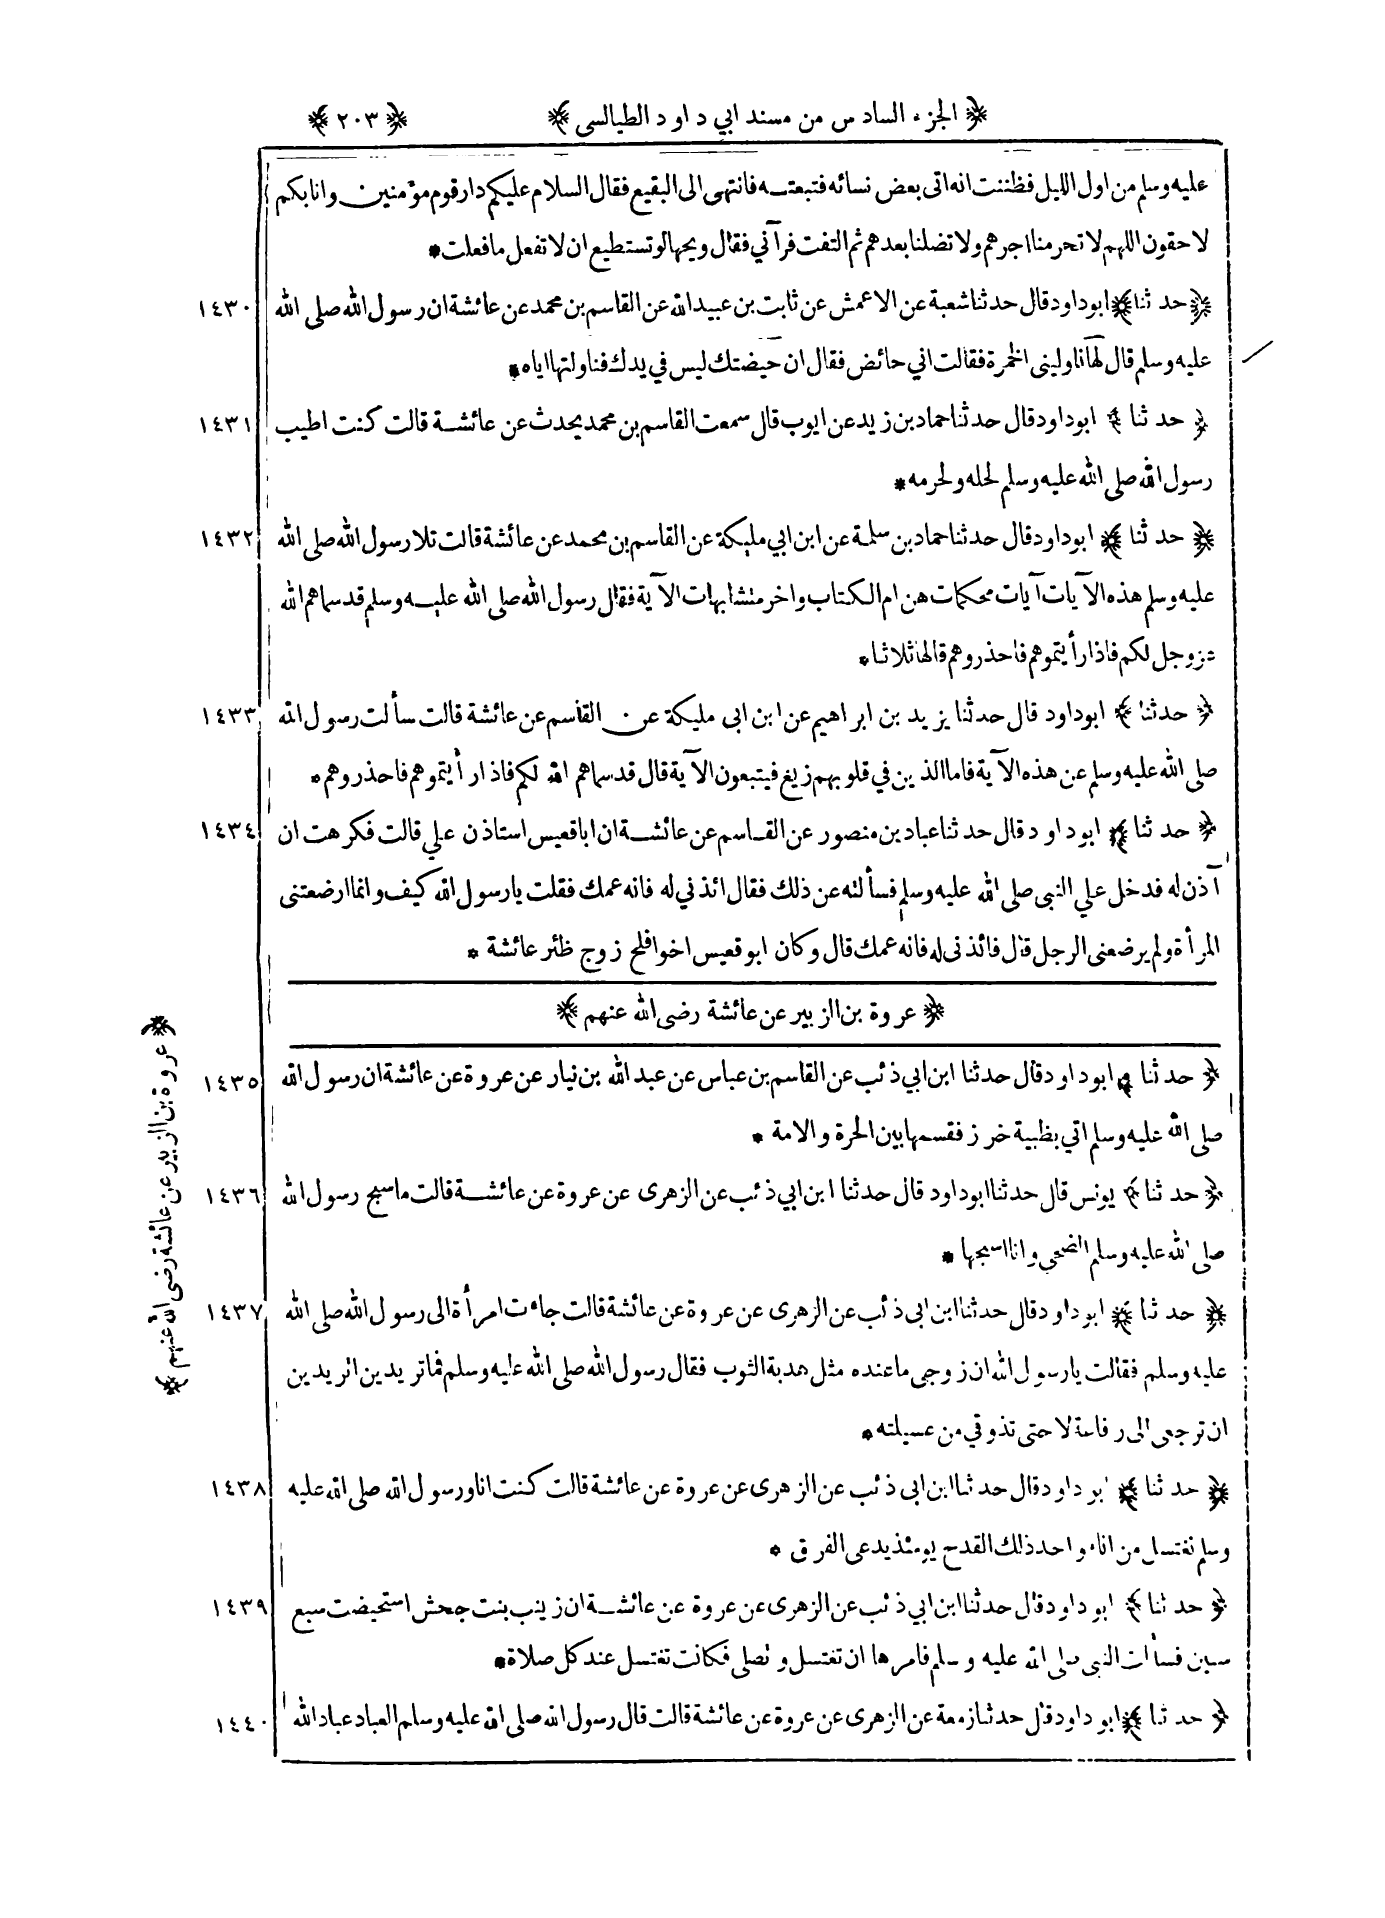 ﴿ الجزء السادس من مسند ابي داود الطيالسى ﴾ ﴿ ٢٠٣ ﴾
عليه وسلم من اول الليل فظننت انه اتى بعض نسائه فتبعته فانتهى الى البقيع فقال السلام عليكم دار قوم مؤمنين وانا بكم
لاحقون اللهم لا تحرمنا اجرهم ولا تضلنا بعدهم ثم التفت فرآني فقال ويحها لو تستطيع ان لا تفعل ما فعلت *
﴿ حدثنا ﴾ ابو داود قال حدثنا شعبة عن الاعمش عن ثابت بن عبيد الله عن القاسم بن محمد عن عائشة ان رسول الله صلى الله ١٤٣٠
عليه وسلم قال لها ناوليني الخمرة فقالت اني حائض فقال ان حيضتك ليس في يدك فناولتها اياه *
﴿ حدثنا ﴾ ابو داود قال حدثنا حماد بن زيد عن ايوب قال سمعت القاسم بن محمد يحدث عن عائشة قالت كنت اطيب ١٤٣١
رسول الله صلى الله عليه وسلم لحله ولحرمه *
﴿ حدثنا ﴾ ابو داود قال حدثنا حماد بن سلمة عن ابن ابي مليكة عن القاسم بن محمد عن عائشة قالت تلا رسول الله صلى الله ١٤٣٢
عليه وسلم هذه الآيات آيات محكمات هن ام الكتاب واخر متشابهات الآية فقال رسول الله صلى الله عليه وسلم قد سماهم الله
عزوجل لكم فاذا رأيتموهم فاحذروهم قالها ثلاثا *
﴿ حدثنا ﴾ ابو داود قال حدثنا يزيد بن ابراهيم عن ابن ابى مليكة عن القاسم عن عائشة قالت سألت رسول الله ١٤٣٣
صلى الله عليه وسلم عن هذه الآية فاما الذين في قلوبهم زيغ فيتبعون الآية قال قد سماهم الله لكم فاذا رأيتموهم فاحذروهم *
﴿ حدثنا ﴾ ابو داود قال حدثنا عباد بن منصور عن القاسم عن عائشة ان ابا قعيس استاذن علي قالت فكرهت ان ١٤٣٤
آذن له فدخل علي النبى صلى الله عليه وسلم فسألته عن ذلك فقال ائذني له فانه عمك فقلت يا رسول الله كيف وانما ارضعتنى
المرأة ولم يرضعنى الرجل قال فائذنى له فانه عمك قال وكان ابو قعيس اخوا فلح زوج ظئر عائشة *
﴿ عروة بن الزبير عن عائشة رضى الله عنهم ﴾
﴿ عروة بن الزبير عن عائشة رضى الله عنهم ﴾
﴿ حدثنا ﴾ ابو داود قال حدثنا ابن ابي ذئب عن القاسم بن عباس عن عبد الله بن نيار عن عروة عن عائشة ان رسول الله ١٤٣٥
صلى الله عليه وسلم اتي بظبية خرز فقسمها بين الحرة والامة *
﴿ حدثنا ﴾ يونس قال حدثنا ابو داود قال حدثنا ابن ابي ذئب عن الزهرى عن عروة عن عائشة قالت ما سبح رسول الله ١٤٣٦
صلى الله عليه وسلم الضحى وانا اسبحها *
﴿ حدثنا ﴾ ابو داود قال حدثنا ابن ابى ذئب عن الزهرى عن عروة عن عائشة قالت جاءت امرأة الى رسول الله صلى الله ١٤٣٧
عليه وسلم فقالت يا رسول الله ان زوجى ما عنده مثل هدبة الثوب فقال رسول الله صلى الله عليه وسلم فما تريدين اتريدين
ان ترجعى الى رفاعة لا حتى تذوقي من عسيلته *
﴿ حدثنا ﴾ ابو داود قال حدثنا ابن ابى ذئب عن الزهرى عن عروة عن عائشة قالت كنت انا ورسول الله صلى الله عليه ١٤٣٨
وسلم نغتسل من اناء واحد ذلك القدح يومئذ يدعى الفرق *
﴿ حدثنا ﴾ ابو داود قال حدثنا ابن ابي ذئب عن الزهرى عن عروة عن عائشة ان زينب بنت جحش استحيضت سبع ١٤٣٩
سنين فسألت النبى صلى الله عليه وسلم فامرها ان تغتسل وتصلى فكانت تغتسل عند كل صلاة *
﴿ حدثنا ﴾ ابو داود قال حدثنا زمعة عن الزهرى عن عروة عن عائشة قالت قال رسول الله صلى الله عليه وسلم العباد عباد الله ١٤٤٠